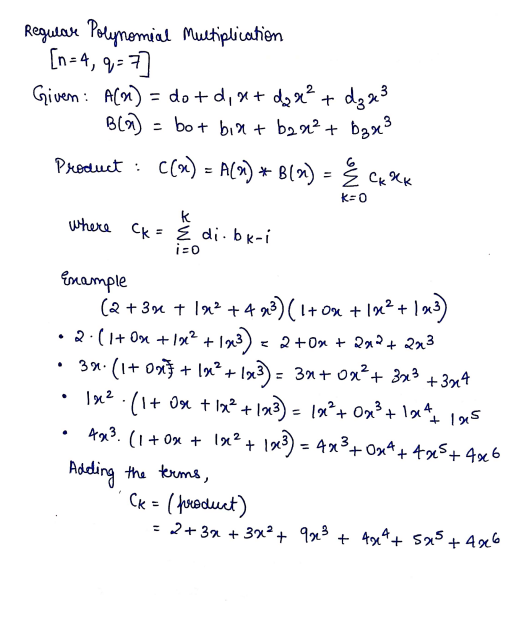 Regular Polynomial Multiplication
[n=4, q=7]
Given: A(x) = d₀ + d₁x + d₂x² + d₃x³
B(x) = b₀ + b₁x + b₂x² + b₃x³
Product : C(x) = A(x) * B(x) = 6 Σ k=0 Cₖ xₖ
where Cₖ = k Σ i=0 dᵢ · b k-i
Example
(2 + 3x + 1x² + 4x³)(1 + 0x + 1x² + 1x³)
• 2·(1 + 0x + 1x² + 1x³) = 2 + 0x + 2x² + 2x³
• 3x·(1 + 0x + 1x² + 1x³) = 3x + 0x² + 3x³ + 3x⁴
• 1x²·(1 + 0x + 1x² + 1x³) = 1x² + 0x³ + 1x⁴ + 1x⁵
• 4x³·(1 + 0x + 1x² + 1x³) = 4x³ + 0x⁴ + 4x⁵ + 4x⁶
Adding the terms,
Cₖ = (product)
= 2 + 3x + 3x² + 9x³ + 4x⁴ + 5x⁵ + 4x⁶